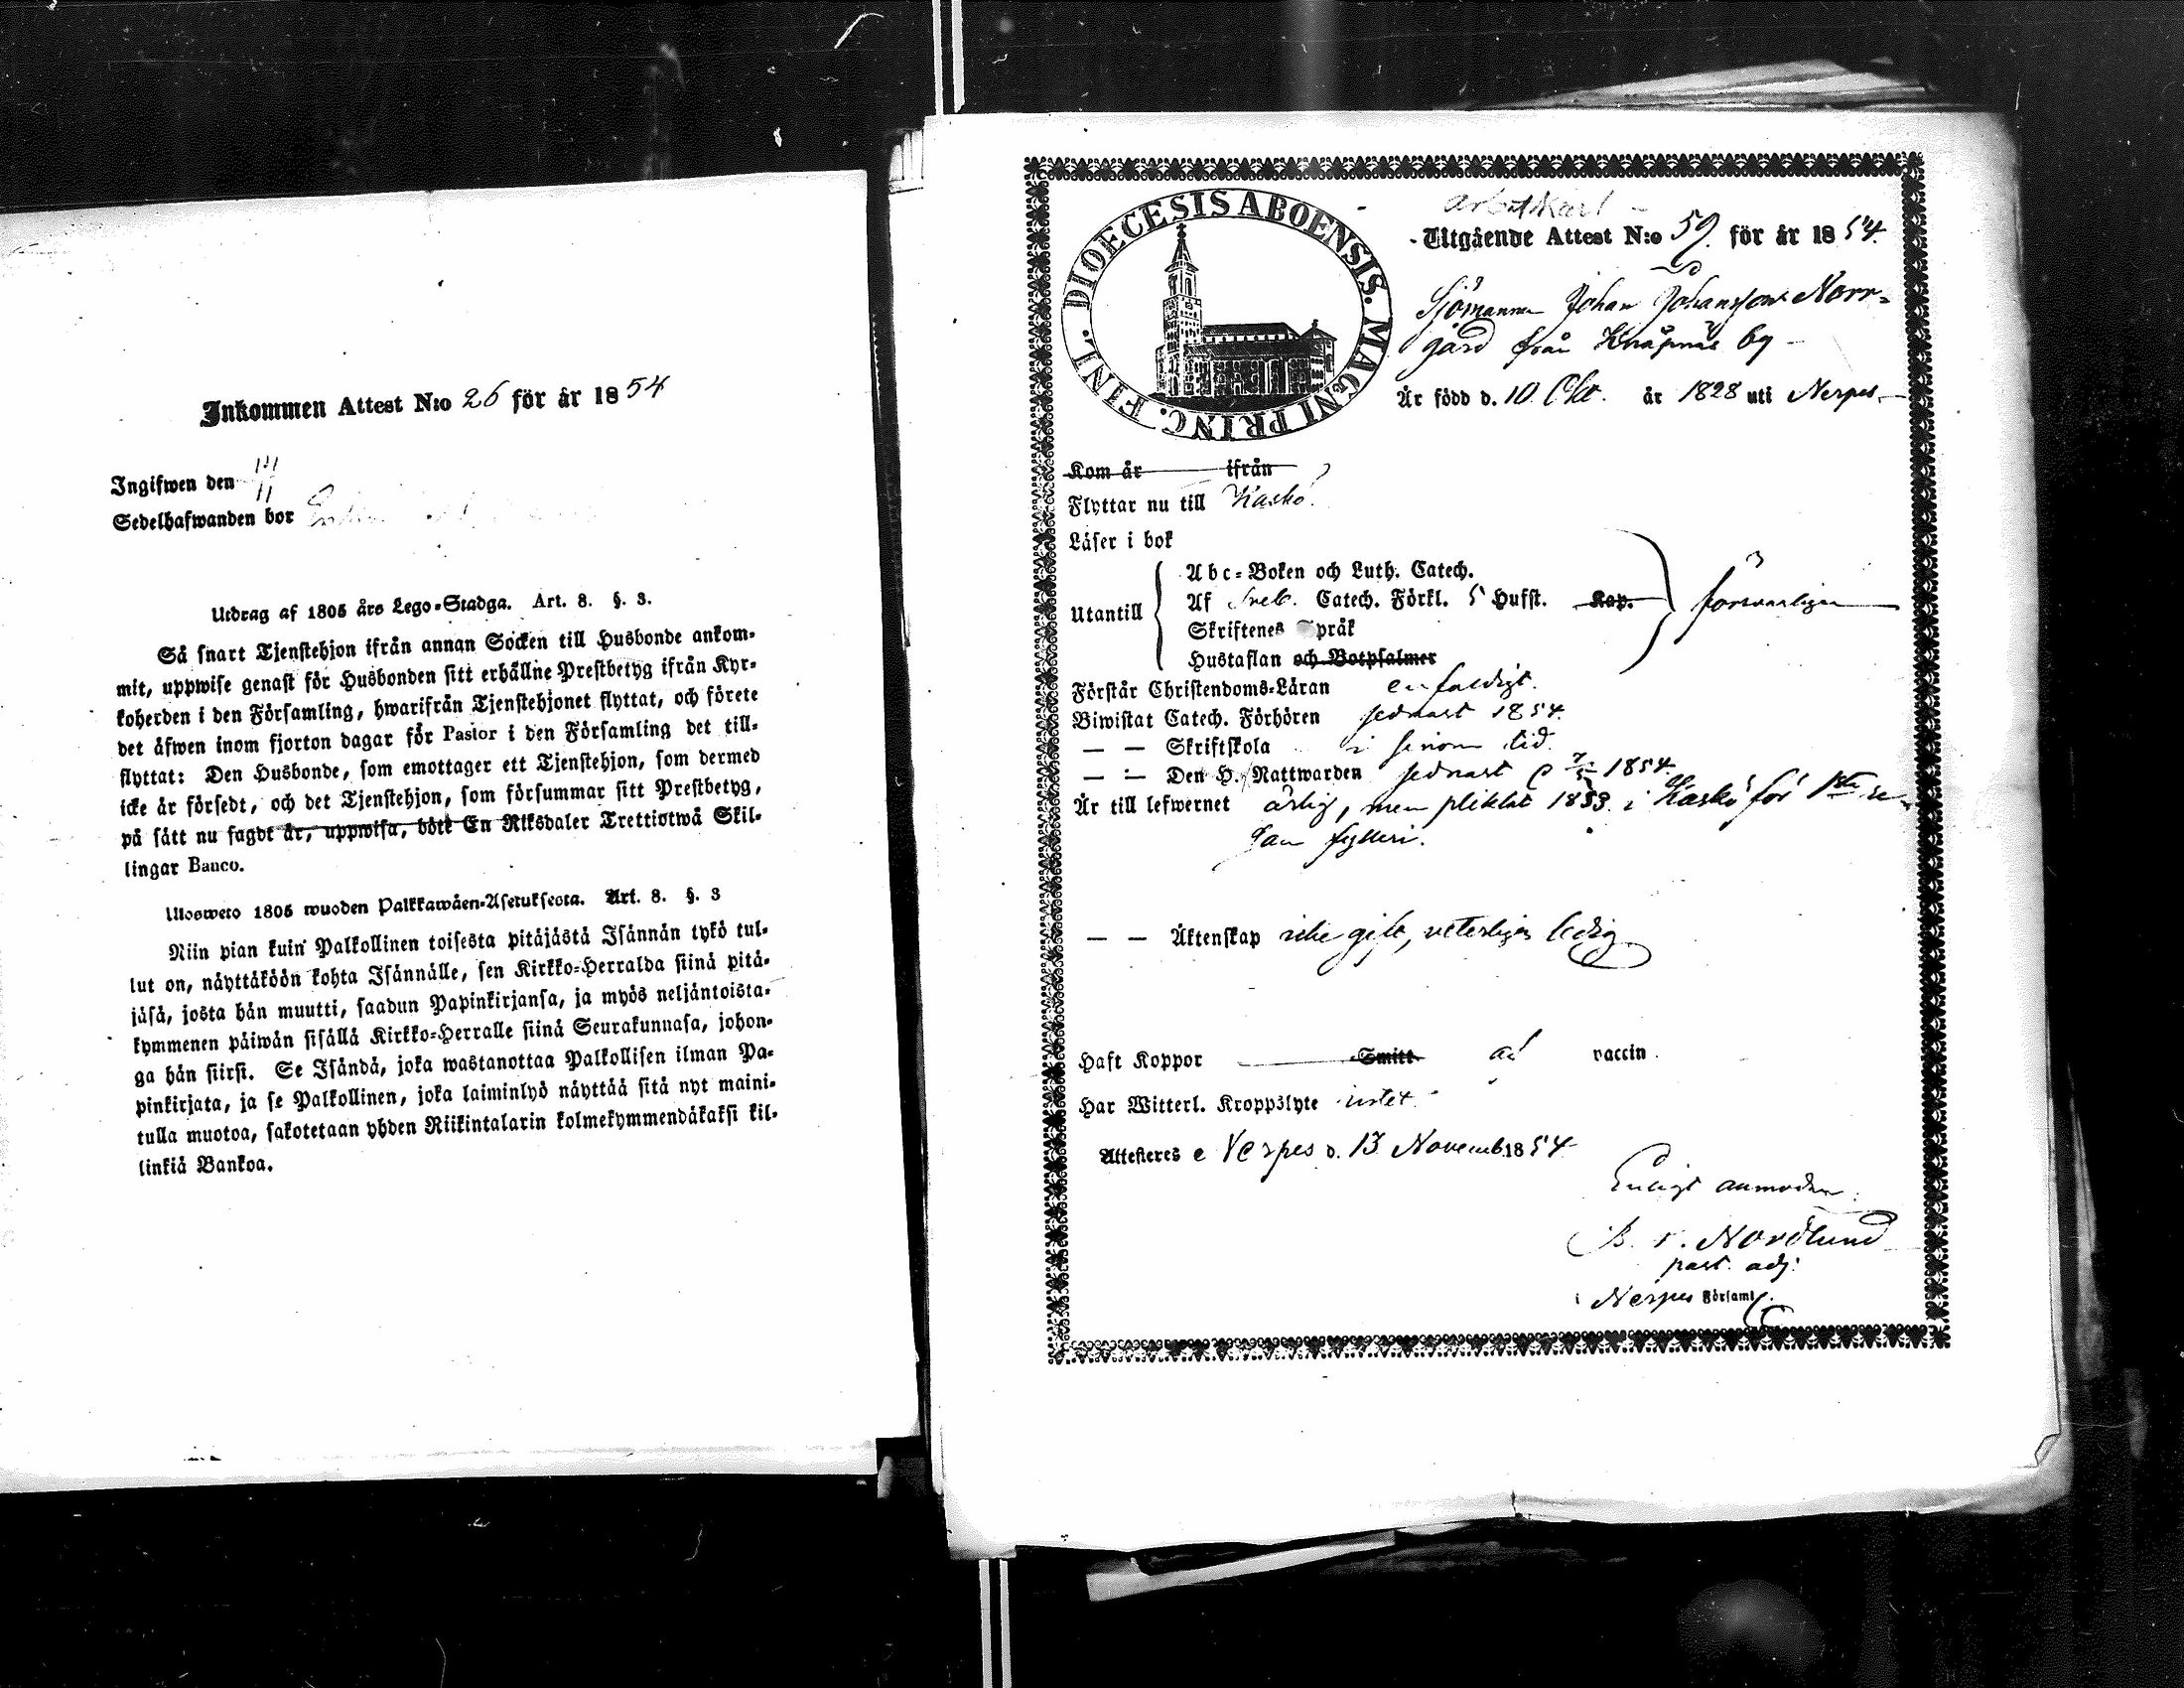 Inkommen Attest N:o 26 för år 1854
Ingifwen den 14/11
Sedelhafwanden bor
Utdrag af 1805 års Lego-Stadga. Art. 8. §. 3.
Så snart Tjenstehjon ifrån annan Socken till Husbonde ankom-
mit, uppwise genast för Husbonden sitt erhållne Prestbetyg ifrån Kyr-
koherden i den Församling, hwarifrån Tjenstehjonet flyttat, och förete
det äfwen inom fjorton dagar för Pastor i den Församling det till-
flyttat: Den Husbonde, som emottager ett Tjenstehjon, som dermed
icke är försedt, och det Tjenstehjon, som försummar sitt Prestbetyg,
på sätt nu sagdt är, uppwisa, böte En Riksdaler Trettiotwå Skil-
lingar Banco.
Ulosweto 1805 wuoden Palkkawäen-Asetuksesta. Art. 8. §. 3
Niin pian kuin Palkollinen toisesta pitäjästä Isännän tykö tul-
lut on, näyttäköön kohta Isännälle, sen Kirkko-Herralda siinä pitä-
jäsä, josta hän muutti, saadun Papinkirjansa, ja myös neljäntoista-
kymmenen päiwän sisällä Kirkko-Herralle siinä Seurakunnasa, johon-
ga hän siirsi. Se Isändä, joka wastanottaa Palkollisen ilman Pa-
pinkirjata, ja se Palkollinen, joka laiminlyö näyttää sitä nyt maini-
tulla muotoa, sakotetaan yhden Riikintalarin kolmekymmendäkaksi kil-
linkiä Bankoa.
DIOECESIS ABOENSIS. MAGNI PRINC. FINL.
arbetskarl
Utgående Attest N:o 59. för år 1854.
Sjömannen Johan Johansson Norr-
gård från Knåpnäs by
Är född d. 10 Okt. år 1828 uti Nerpes
Kom år ifrån
Flyttar nu till Kaskö.
Läser i bok
Utantill
Abc-Boken och Luth. Catech.
Af Sveb. Catech. Förkl. 5 Hufst. Kap.
Skriftenes Språk
Hustaflan och Botpsalmer
försvarligen
Förstår Christendoms-Läran enfaldigt.
Biwistat Catech. Förhören sednast 1854.
— — Skriftskola i sinom tid.
— — Den H. Nattwarden sednast d 7/5 1854.
Är till lefwernet ärlig, men pliktat 1853 i Kaskö för 1sta re-
san fylleri.
— — Äktenskap icke gift, veterligen ledig
Haft Koppor Smitt af vaccin.
Har Witterl. Kroppslyte intet.
Attesteres e Nerpes d. 13 Novemb. 1854
Enligt anmodan:
Nordlund
past. adj.
i Nerpes Församl.